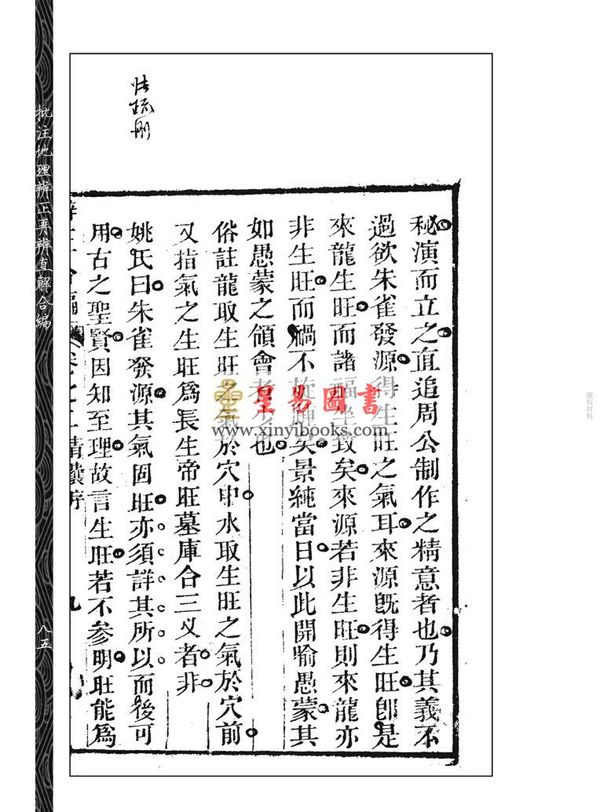 秘演而立之直追周公制作之精意者也乃其義不
過欲朱雀發源得生旺之氣耳來源既得生旺卽是
來龍生旺而諸福坐致矣來源若非生旺則來龍亦
非生旺而禍不旋踵矣景純當日以此開喻愚蒙其
如愚蒙之領會者少也
俗註龍取生旺之氣於穴中水取生旺之氣於穴前
又指氣之生旺爲長生帝旺墓庫合三义者非
姚氏曰朱雀發源其氣固旺亦須詳其所以而後可
用古之聖賢因知至理故言生旺若不参明旺能爲
青囊序 九
批注地理辨正再辨直解合編
八五
星易圖書
www.xinyibooks.com
版权材料